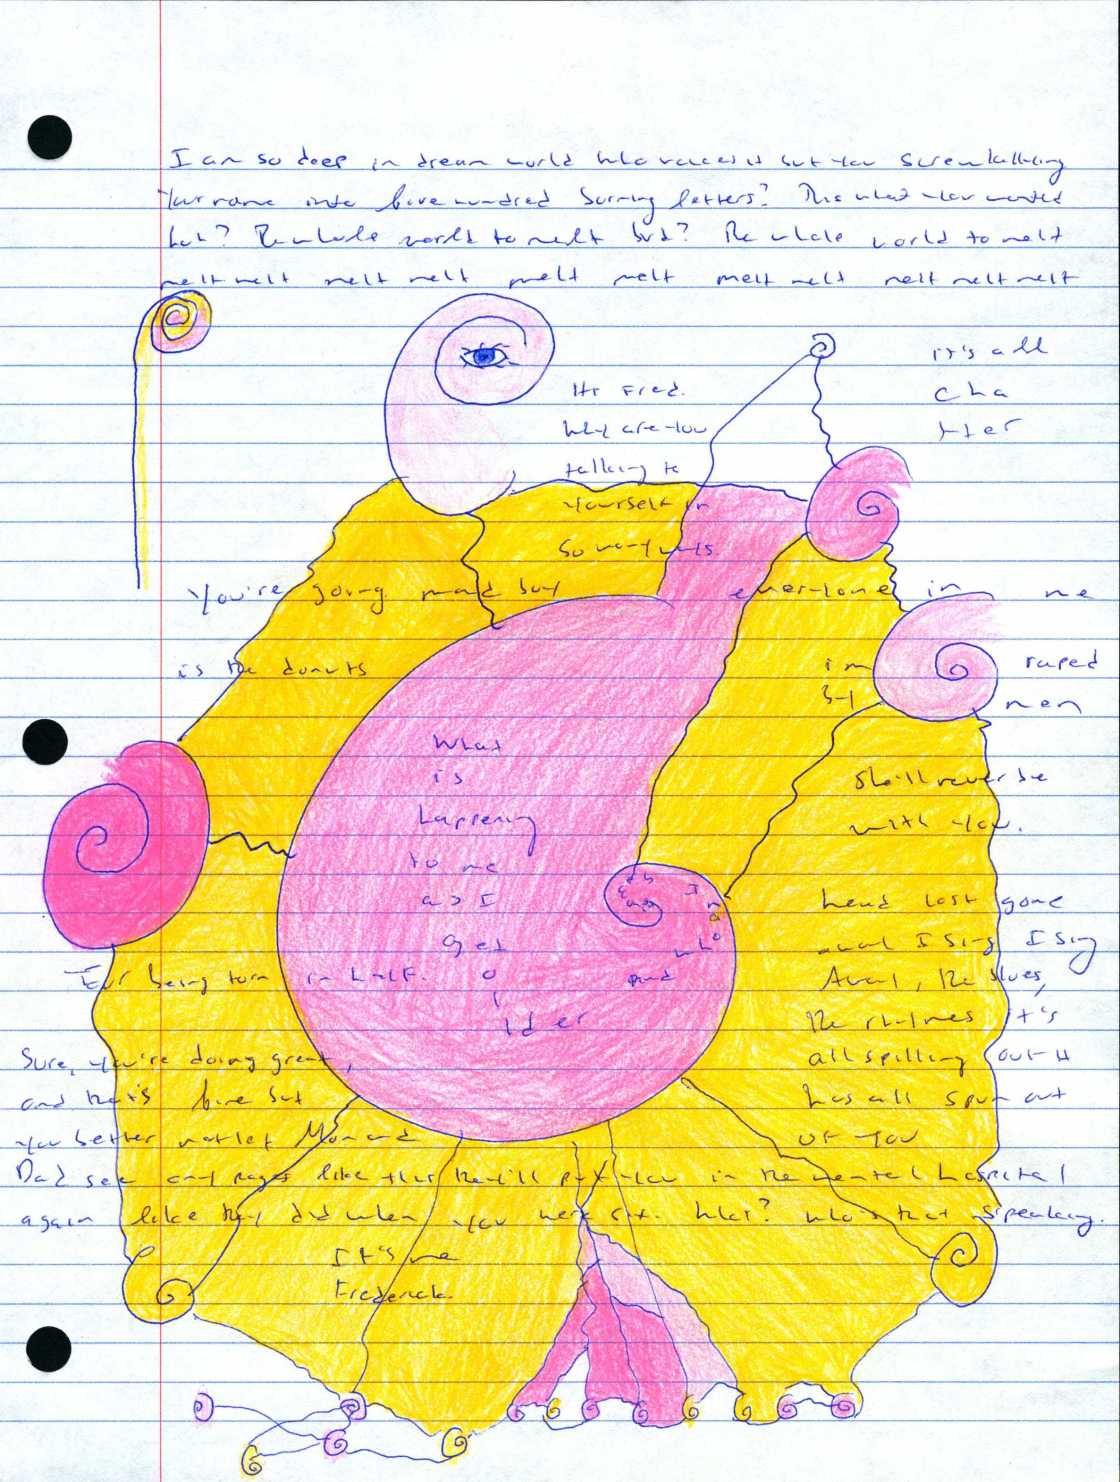 I am so deep in dream world who voices it but you Screwballing
Your name into five hundred burning letters? This what you wanted
huh? The whole world to melt bud? The whole world to melt
melt melt melt melt melt melt melt melt melt melt melt
it's all
cha
tter
Hi Fred.
Why are you
talking to
yourself in
so many ways.
You're going mad boy everyone in me
is the donuts
im raped
by men
What
is
happening
to me
as I
get
o
l
lder
and who
I
She'll never be
with you.
head lost gone
and I sing I sing
Avant, the blues,
the rhymes it's
all spilling out it
has all spun out
of you
Ever being torn in half.
Sure, you're doing great,
and that's fine but
you better not let Mom and
Dad see any pages like this they'll put you in the mental hospital
again like they did when you were six. What? Who's that speaking.
It's me
Frederick.